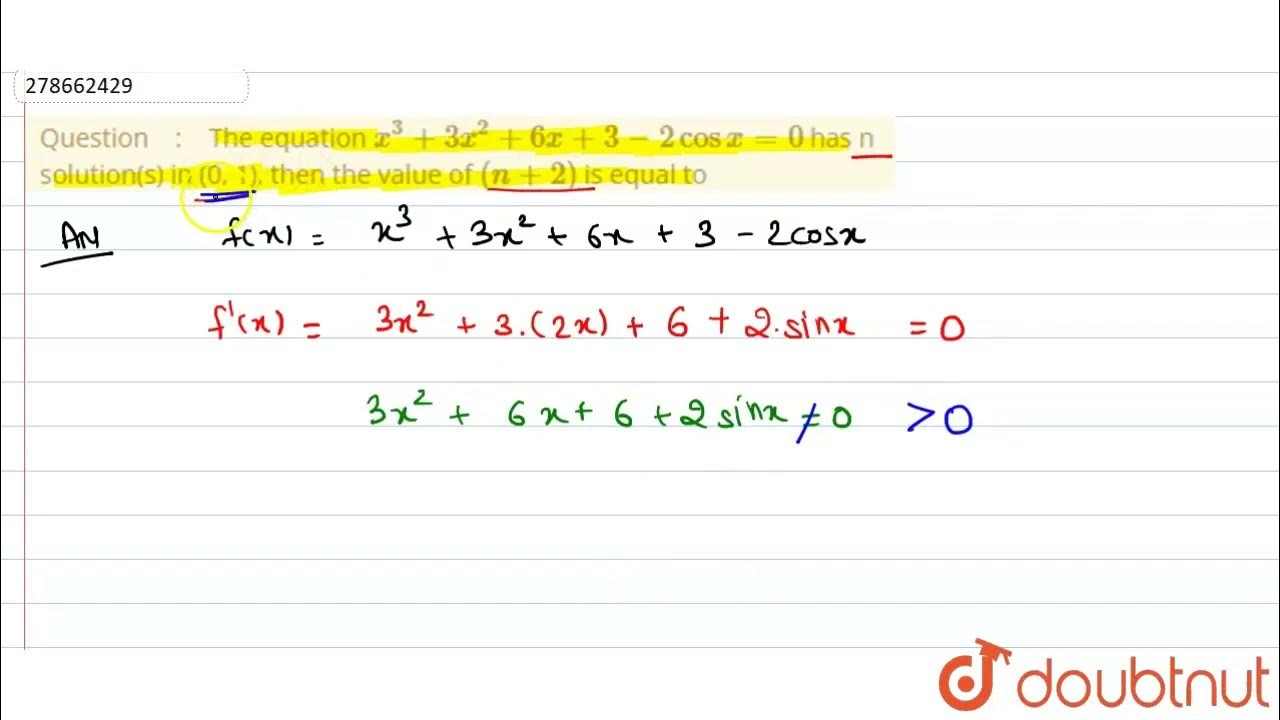 278662429
Question : The equation x³ + 3x² + 6x + 3 − 2 cos x = 0 has n
solution(s) in (0, 1), then the value of (n + 2) is equal to
An f(x) = x³ + 3x² + 6x + 3 - 2cosx
f'(x) = 3x² + 3.(2x) + 6 + 2.sinx = 0
3x² + 6x + 6 + 2sinx ≠ 0 > 0
doubtnut